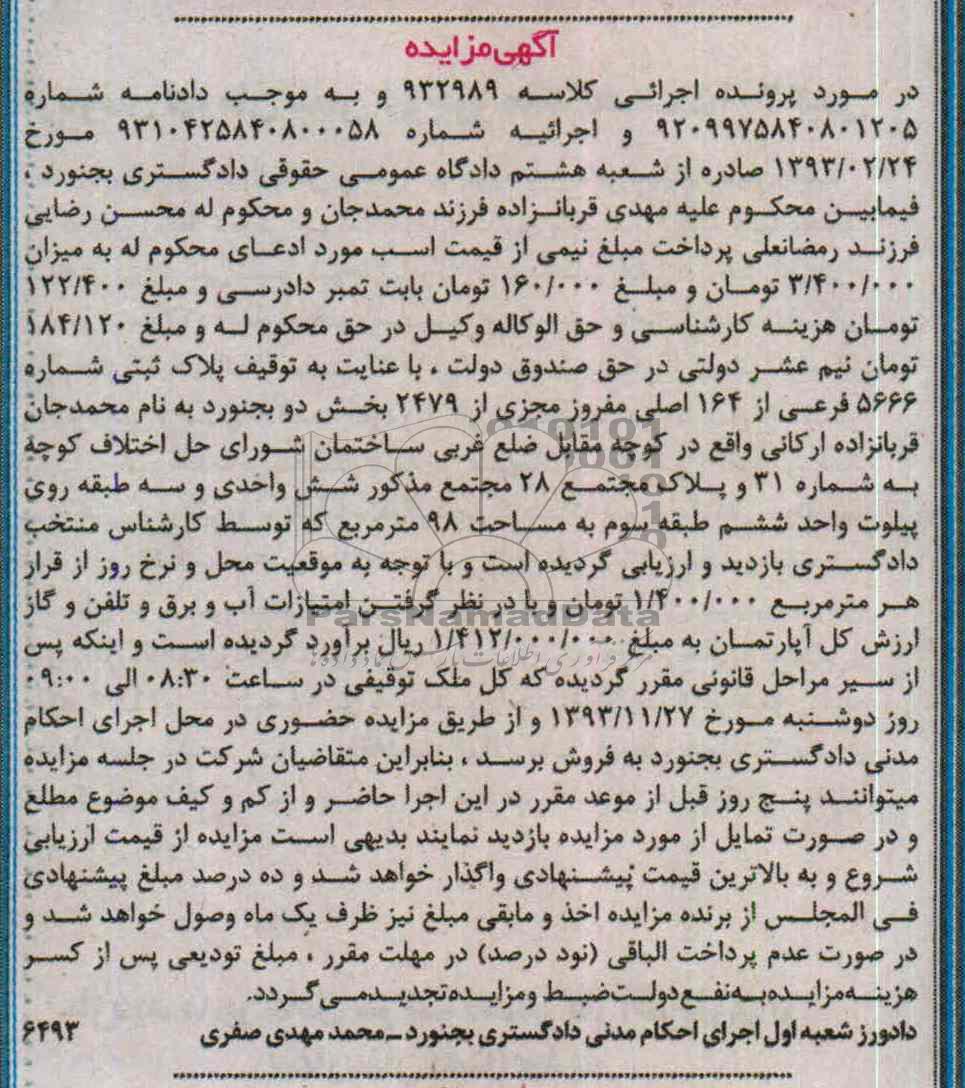 آگهی مزایده
در مورد پرونده اجرائی کلاسه ۹۳۲۹۸۹ و به موجب دادنامه شماره
۹۲۰۹۹۷۵۸۴۰۸۰۱۲۰۵ و اجرائیه شماره ۹۳۱۰۴۲۵۸۴۰۸۰۰۰۵۸ مورخ
۱۳۹۳/۰۲/۲۴ صادره از شعبه هشتم دادگاه عمومی حقوقی دادگستری بجنورد ،
فیمابین محکوم علیه مهدی قربانزاده فرزند محمدجان و محکوم له محسن رضایی
فرزند رمضانعلی پرداخت مبلغ نیمی از قیمت اسب مورد ادعای محکوم له به میزان
۳/۴۰۰/۰۰۰ تومان و مبلغ ۱۶۰/۰۰۰ تومان بابت تمبر دادرسی و مبلغ ۱۲۲/۴۰۰
تومان هزینه کارشناسی و حق الوکاله وکیل در حق محکوم له و مبلغ ۱۸۴/۱۲۰
تومان نیم عشر دولتی در حق صندوق دولت ، با عنایت به توقیف پلاک ثبتی شماره
۵۶۶۶ فرعی از ۱۶۴ اصلی مفروز مجزی از ۲۴۷۹ بخش دو بجنورد به نام محمدجان
قربانزاده ارکانی واقع در کوچه مقابل ضلع غربی ساختمان شورای حل اختلاف کوچه
به شماره ۳۱ و پلاک مجتمع ۲۸ مجتمع مذکور شش واحدی و سه طبقه روی
پیلوت واحد ششم طبقه سوم به مساحت ۹۸ مترمربع که توسط کارشناس منتخب
دادگستری بازدید و ارزیابی گردیده است و با توجه به موقعیت محل و نرخ روز از قرار
هر مترمربع ۱/۴۰۰/۰۰۰ تومان و با در نظر گرفتن امتیازات آب و برق و تلفن و گاز
ارزش کل آپارتمان به مبلغ ۱/۴۱۲/۰۰۰/۰۰۰ ریال برآورد گردیده است و اینکه پس
از سیر مراحل قانونی مقرر گردیده که کل ملک توقیفی در ساعت ۰۸:۳۰ الی ۰۹:۰۰
روز دوشنبه مورخ ۱۳۹۳/۱۱/۲۷ و از طریق مزایده حضوری در محل اجرای احکام
مدنی دادگستری بجنورد به فروش برسد ، بنابراین متقاضیان شرکت در جلسه مزایده
میتوانند پنج روز قبل از موعد مقرر در این اجرا حاضر و از کم و کیف موضوع مطلع
و در صورت تمایل از مورد مزایده بازدید نمایند بدیهی است مزایده از قیمت ارزیابی
شروع و به بالاترین قیمت پیشنهادی واگذار خواهد شد و ده درصد مبلغ پیشنهادی
فی المجلس از برنده مزایده اخذ و مابقی مبلغ نیز ظرف یک ماه وصول خواهد شد و
در صورت عدم پرداخت الباقی (نود درصد) در مهلت مقرر ، مبلغ تودیعی پس از کسر
هزینه مزایده به نفع دولت ضبط و مزایده تجدید می گردد.
دادورز شعبه اول اجرای احکام مدنی دادگستری بجنورد – محمد مهدی صفری ۶۴۹۳
ParsNamadData